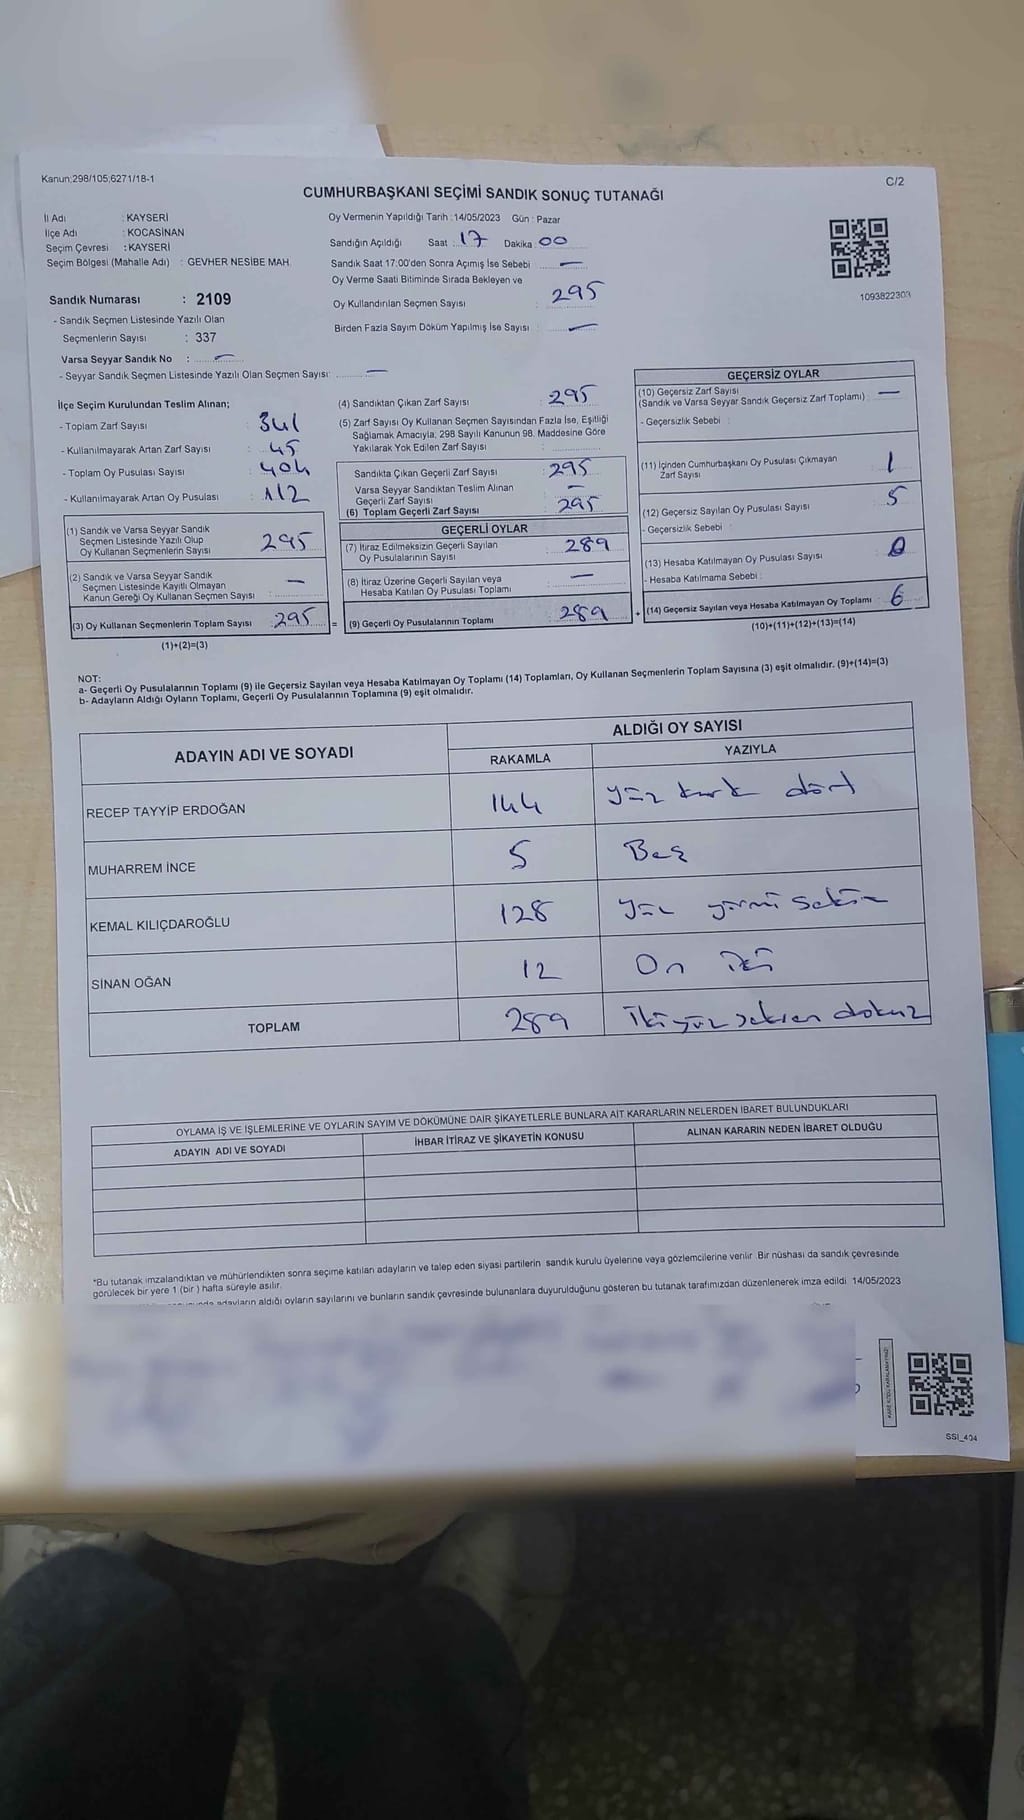 Kanun;298/105;6271/18-1
C/2
CUMHURBAŞKANI SEÇİMİ SANDIK SONUÇ TUTANAĞI
İl Adı : KAYSERİ
İlçe Adı : KOCASİNAN
Seçim Çevresi : KAYSERİ
Seçim Bölgesi (Mahalle Adı) : GEVHER NESİBE MAH.
Sandık Numarası : 2109
- Sandık Seçmen Listesinde Yazılı Olan
Seçmenlerin Sayısı : 337
Varsa Seyyar Sandık No : —
- Seyyar Sandık Seçmen Listesinde Yazılı Olan Seçmen Sayısı: —
Oy Vermenin Yapıldığı Tarih : 14/05/2023 Gün : Pazar
Sandığın Açıldığı Saat : 17 Dakika : 00
Sandık Saat 17:00'den Sonra Açımış İse Sebebi : —
Oy Verme Saati Bitiminde Sırada Bekleyen ve
Oy Kullandırılan Seçmen Sayısı : 295
Birden Fazla Sayım Döküm Yapılmış İse Sayısı : —
1093822303
İlçe Seçim Kurulundan Teslim Alınan;
- Toplam Zarf Sayısı : 341
- Kullanılmayarak Artan Zarf Sayısı : 45
- Toplam Oy Pusulası Sayısı : 404
- Kullanılmayarak Artan Oy Pusulası : 112
(1) Sandık ve Varsa Seyyar Sandık
Seçmen Listesinde Yazılı Olup
Oy Kullanan Seçmenlerin Sayısı : 295
(2) Sandık ve Varsa Seyyar Sandık
Seçmen Listesinde Kayıtlı Olmayan
Kanun Gereği Oy Kullanan Seçmen Sayısı : —
(3) Oy Kullanan Seçmenlerin Toplam Sayısı : 295
(1)+(2)=(3)
(4) Sandıktan Çıkan Zarf Sayısı : 295
(5) Zarf Sayısı Oy Kullanan Seçmen Sayısından Fazla İse, Eşitliği
Sağlamak Amacıyla, 298 Sayılı Kanunun 98. Maddesine Göre
Yakılarak Yok Edilen Zarf Sayısı :
Sandıkta Çıkan Geçerli Zarf Sayısı : 295
Varsa Seyyar Sandıktan Teslim Alınan
Geçerli Zarf Sayısı : —
(6) Toplam Geçerli Zarf Sayısı : 295
GEÇERLİ OYLAR
(7) İtiraz Edilmeksizin Geçerli Sayılan
Oy Pusulalarının Sayısı : 289
(8) İtiraz Üzerine Geçerli Sayılan veya
Hesaba Katılan Oy Pusulası Toplamı : —
= (9) Geçerli Oy Pusulalarının Toplamı : 289
GEÇERSİZ OYLAR
(10) Geçersiz Zarf Sayısı
(Sandık ve Varsa Seyyar Sandık Geçersiz Zarf Toplamı) : —
- Geçersizlik Sebebi :
(11) İçinden Cumhurbaşkanı Oy Pusulası Çıkmayan
Zarf Sayısı : 1
(12) Geçersiz Sayılan Oy Pusulası Sayısı : 5
- Geçersizlik Sebebi :
(13) Hesaba Katılmayan Oy Pusulası Sayısı : 0
- Hesaba Katılmama Sebebi :
+ (14) Geçersiz Sayılan veya Hesaba Katılmayan Oy Toplamı : 6
(10)+(11)+(12)+(13)=(14)
NOT:
a- Geçerli Oy Pusulalarının Toplamı (9) ile Geçersiz Sayılan veya Hesaba Katılmayan Oy Toplamı (14) Toplamları, Oy Kullanan Seçmenlerin Toplam Sayısına (3) eşit olmalıdır. (9)+(14)=(3)
b- Adayların Aldığı Oyların Toplamı, Geçerli Oy Pusulalarının Toplamına (9) eşit olmalıdır.
ADAYIN ADI VE SOYADI ALDIĞI OY SAYISI
RAKAMLA YAZIYLA
RECEP TAYYİP ERDOĞAN 144 yüz kırk dört
MUHARREM İNCE 5 Beş
KEMAL KILIÇDAROĞLU 128 yüz yirmi sekiz
SİNAN OĞAN 12 On iki
TOPLAM 289 ikiyüz seksen dokuz
OYLAMA İŞ VE İŞLEMLERİNE VE OYLARIN SAYIM VE DÖKÜMÜNE DAİR ŞİKAYETLERLE BUNLARA AİT KARARLARIN NELERDEN İBARET BULUNDUKLARI
ADAYIN ADI VE SOYADI İHBAR İTİRAZ VE ŞİKAYETİN KONUSU ALINAN KARARIN NEDEN İBARET OLDUĞU
*Bu tutanak imzalandıktan ve mühürlendikten sonra seçime katılan adayların ve talep eden siyasi partilerin sandık kurulu üyelerine veya gözlemcilerine verilir. Bir nüshası da sandık çevresinde
görülecek bir yere 1 (bir) hafta süreyle asılır.
adayların aldığı oyların sayılarını ve bunların sandık çevresinde bulunanlara duyurulduğunu gösteren bu tutanak tarafımızdan düzenlenerek imza edildi. 14/05/2023
KARE KODU KARALAMAYINIZ!
SSI_404